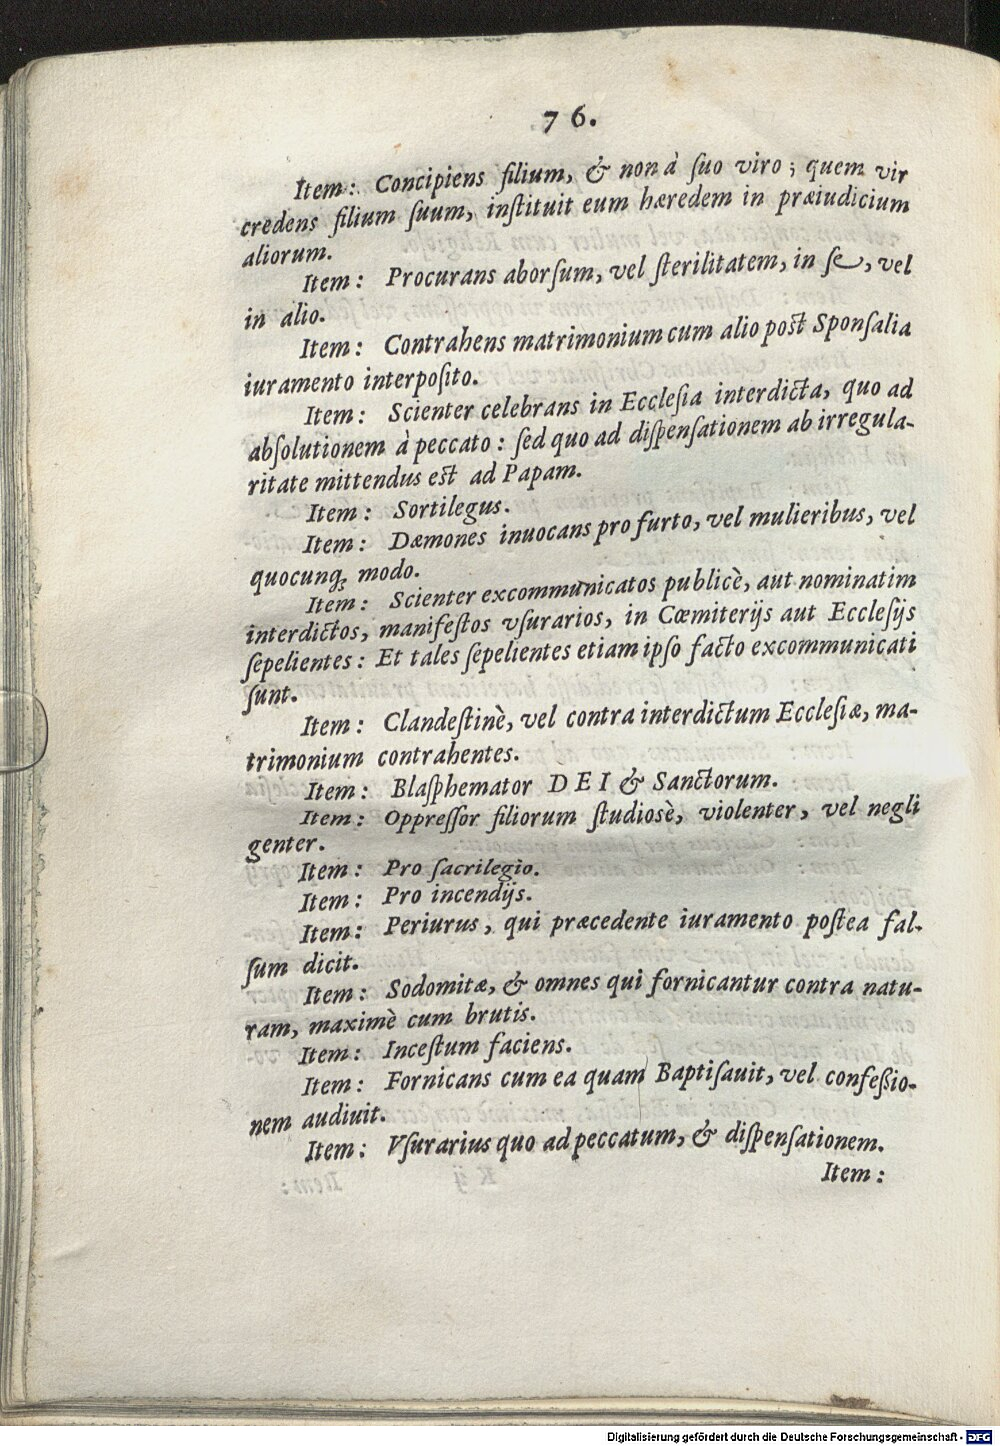 76.
Item: Concipiens filium, & non à ſuo viro; quem vir
credens filium ſuum, inſtituit eum hæredem in præiudicium
aliorum.
Item: Procurans aborſum, vel ſterilitatem, in ſe, vel
in alio.
Item: Contrahens matrimonium cum alio poſt Sponſalia
iuramento interpoſito.
Item: Scienter celebrans in Eccleſia interdicta, quo ad
abſolutionem à peccato: ſed quo ad diſpenſationem ab irregula-
ritate mittendus eſt ad Papam.
Item: Sortilegus.
Item: Dæmones inuocans pro furto, vel mulieribus, vel
quocunq; modo.
Item: Scienter excommunicatos publicè, aut nominatim
interdictos, manifeſtos vſurarios, in Cœmiterijs aut Eccleſijs
ſepelientes: Et tales ſepelientes etiam ipſo facto excommunicati
ſunt.
Item: Clandeſtinè, vel contra interdictum Eccleſiæ, ma-
trimonium contrahentes.
Item: Blaſphemator DEI & Sanctorum.
Item: Oppreſſor filiorum ſtudiosè, violenter, vel negli
genter.
Item: Pro ſacrilegio.
Item: Pro incendijs.
Item: Periurus, qui præcedente iuramento poſtea fal-
ſum dicit.
Item: Sodomitæ, & omnes qui fornicantur contra natu-
ram, maximè cum brutis.
Item: Inceſtum faciens.
Item: Fornicans cum ea quam Baptiſauit, vel confeßio-
nem audiuit.
Item: Vſurarius quo ad peccatum, & diſpenſationem.
Item:
Digitalisierung gefördert durch die Deutsche Forschungsgemeinschaft - DFG